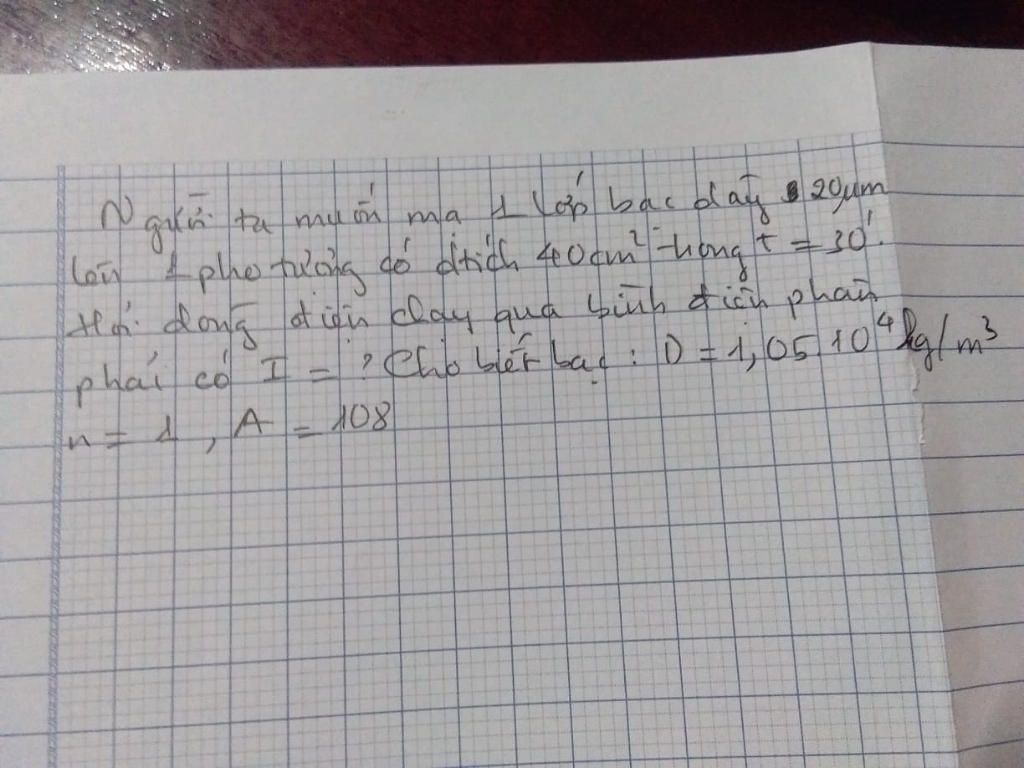 Người ta muốn mạ 1 lớp bạc dày 20μm
lên 1 pho tượng có dtích 40cm² trong t = 30'.
Hỏi dòng điện chạy qua bình điện phân
phải có I = ? Cho biết bạc : D = 1,05 10⁴ kg/m³
n = 1 , A = 108